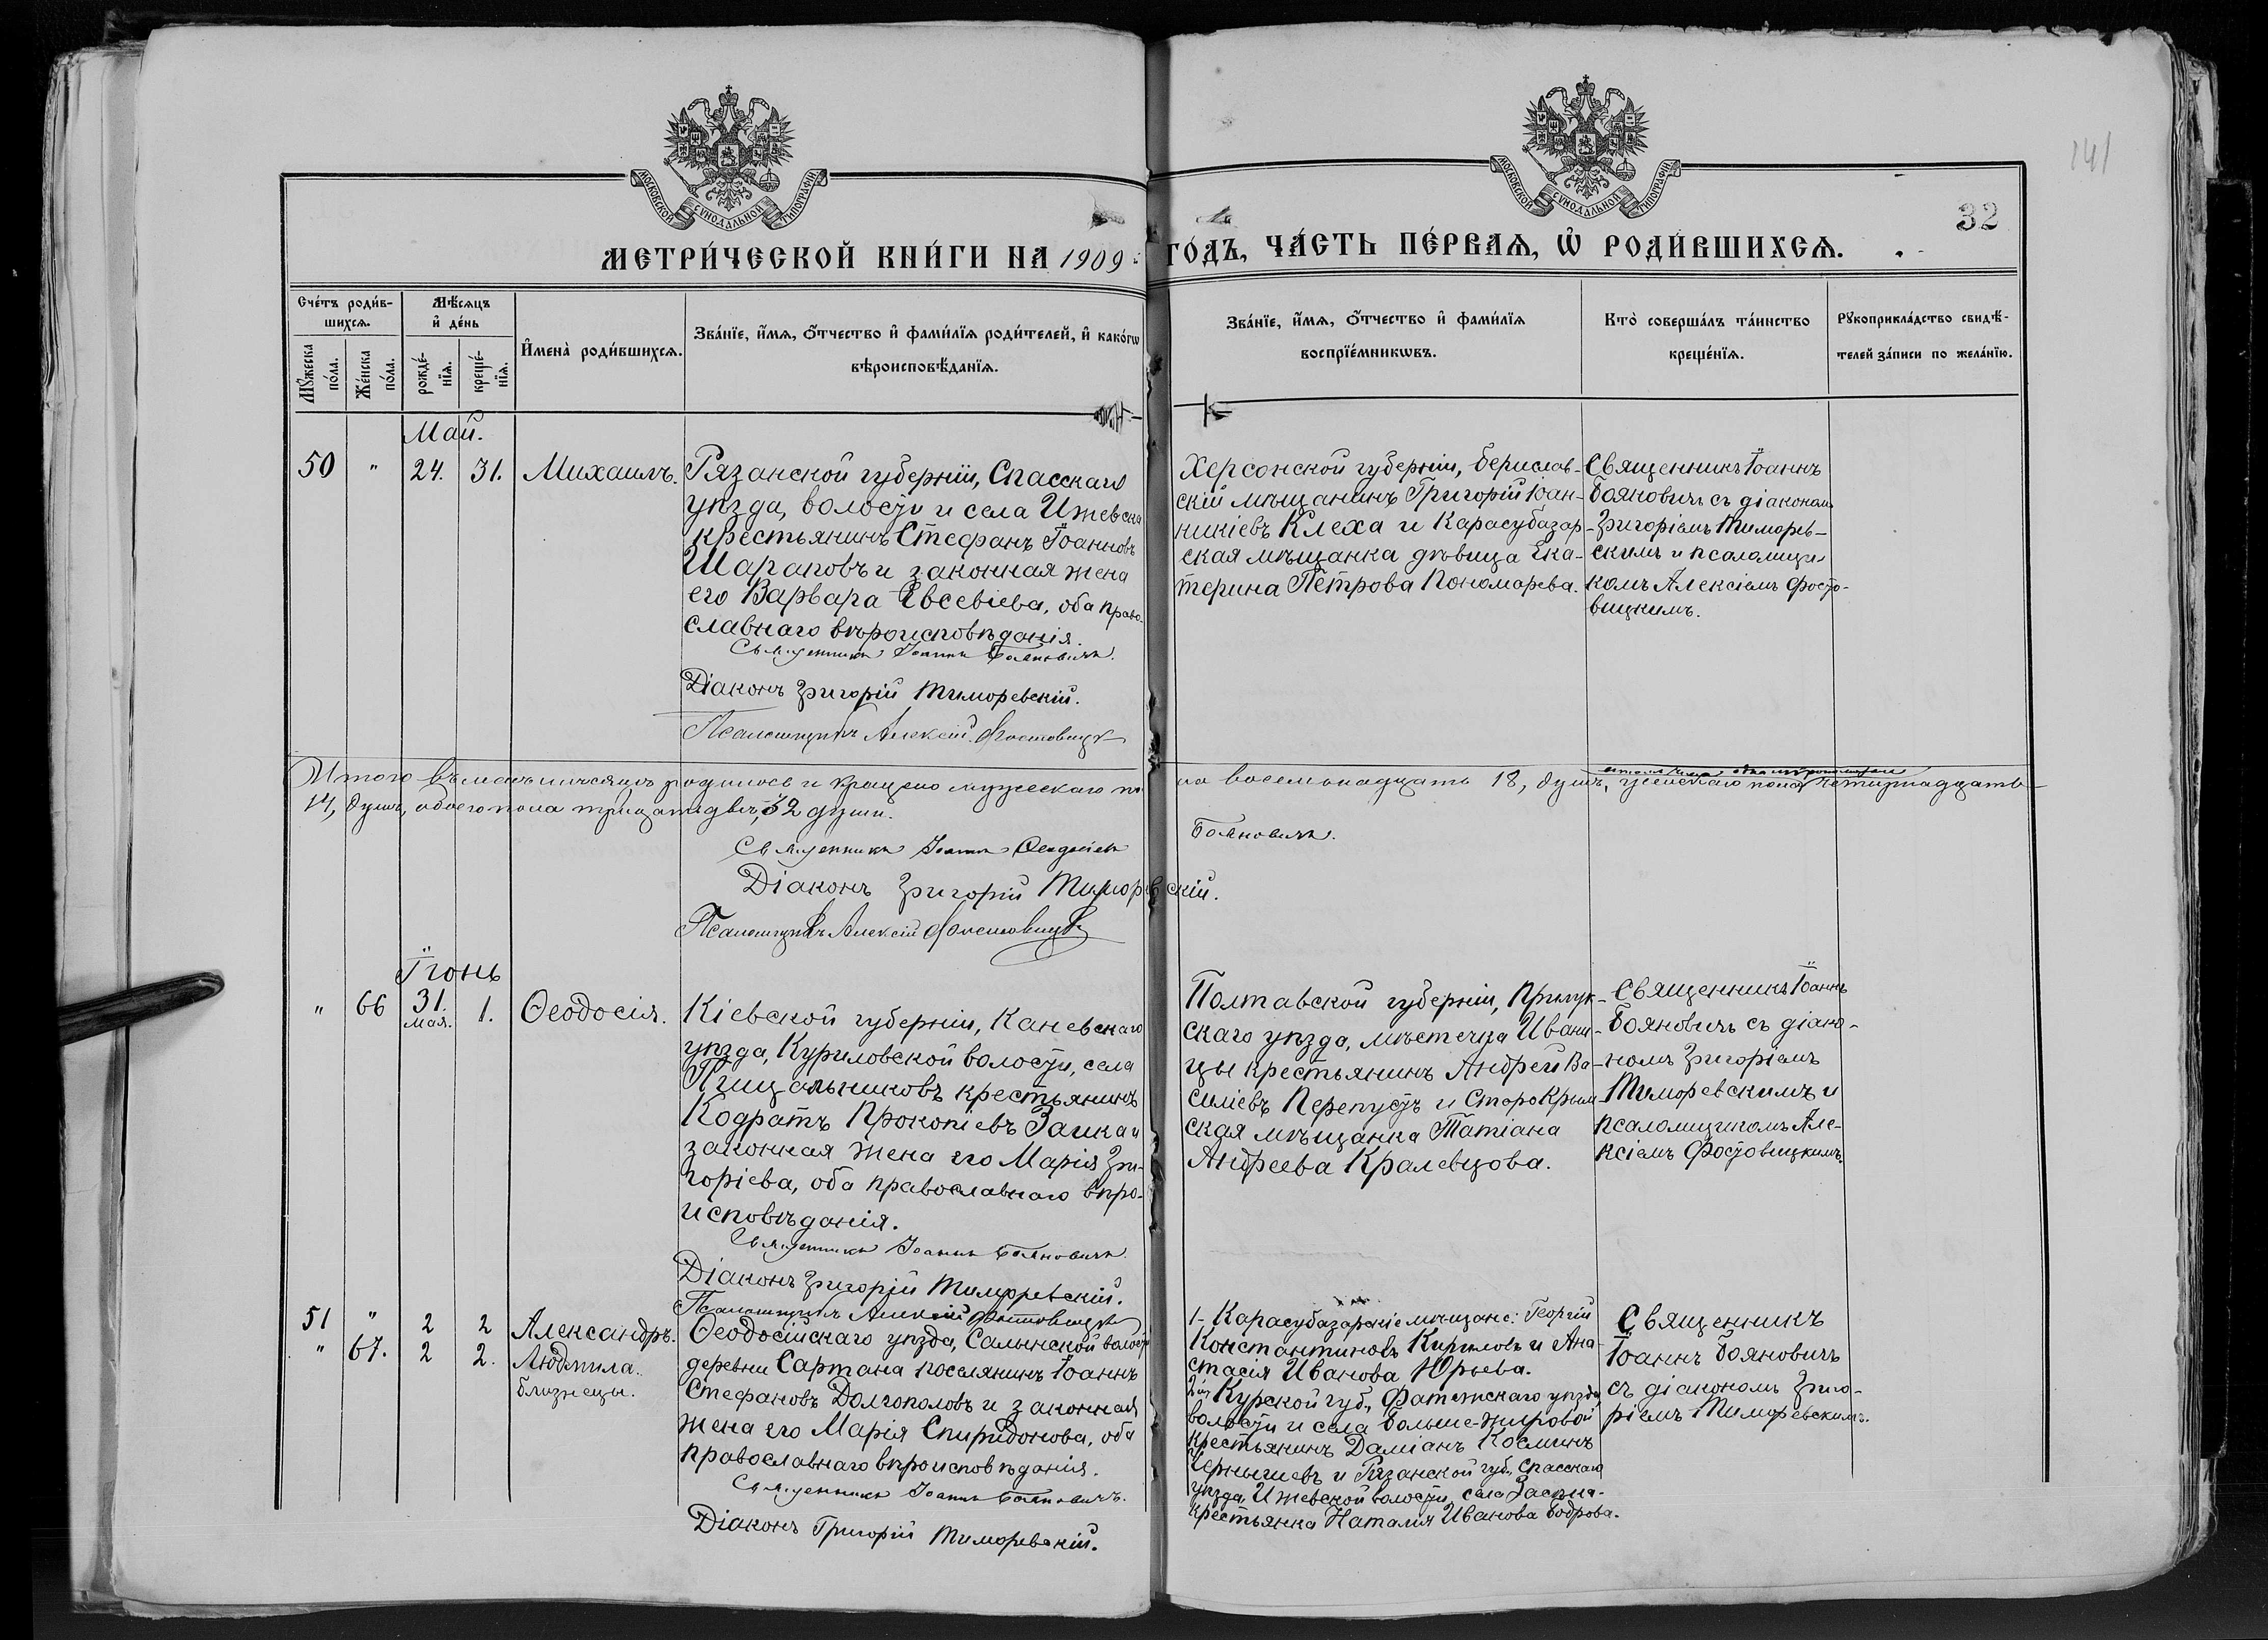 141
32
МОСКОВСКОЙ СѴНОДАЛЬНОЙ ТИПОГРАФІИ
МОСКОВСКОЙ СѴНОДАЛЬНОЙ ТИПОГРАФІИ
МЕТРИ́ЧЕСКОЙ КНИ́ГИ НА 1909 ГО́ДЪ, ЧА́СТЬ ПЕ́РВАѦ, Ѡ҆ РОДИ́ВШИХСѦ.
Сче́тъ роди́в-
шихсѧ.
Мꙋ́жеска
по́ла.
Же́нска
по́ла.
Мѣ́сѧцъ
и҆ де́нь
рожде́-
нїѧ.
креще́-
нїѧ.
И҆мена̀ роди́вшихсѧ.
Зва́нїе, и҆́мѧ, ѻ҆́тчество и҆ фами́лїѧ роди́телей, и҆ како́гѡ
вѣроисповѣ́данїѧ.
Зва́нїе, и҆́мѧ, ѻ҆́тчество и҆ фами́лїѧ
воспрїе́мникѡвъ.
Кто̀ соверша́лъ та́инство
креще́нїѧ.
Рꙋкоприкла́дство свидѣ́-
телей за́писи по жела́нїю.
Май.
50 " 24. 31. Михаилъ.
Рязанской губерніи, Спасскаго
уѣзда, волости и села Ижевска
крестьянинъ Стефанъ Іоанновъ
Шараповъ и законная жена
его Варвара Евсевіева, оба право-
славнаго вѣроисповѣданія.
Священникъ Іоаннъ Бояновичъ.
Діаконъ Григорій Тиморевскій.
Псаломщикъ Алексій Фостовицк
Херсонской губерніи, Берислав-
скій мѣщанинъ Григорій Іоан-
никіевъ Клеха и Карасубазар-
ская мѣщанка дѣвица Ека-
терина Петрова Пономарева.
Священникъ Іоаннъ
Бояновичъ съ діакономъ
Григоріемъ Тиморев-
скимъ и псаломщи-
комъ Алексіемъ Фосто-
вицкимъ.
Итого въ маѣ мѣсяцѣ родилось и крещено мужескаго по ла восемьнадцать 18, душъ, женскаго пола четырнадцать
14, душъ, обоего пола тридцать двѣ, 32 души.
Священникъ Іоаннъ Ѳеодосіевъ Бояновичъ.
Діаконъ Григорій Тиморевскій.
Псаломщикъ Алексій Фостовицк
Іюнь
" 66 31. мая. 1. Ѳеодосія.
Кіевской губерніи, Каневскаго
уѣзда, Куриловской волости, села
Пищальниковъ крестьянинъ
Кодратъ Прокопіевъ Заика и
законная жена его Марія Гри-
горіева, оба православнаго вѣро-
исповѣданія.
Священникъ Іоаннъ Бояновичъ.
Діаконъ Григорій Тиморевскій.
Псаломщикъ Алексій Фостовицк
Полтавской губерніи, Прилук-
скаго уѣзда, мѣстечка Ивани-
цы крестьянинъ Андрей Ва-
силіевъ Перепустъ и Старокрым-
ская мѣщанка Татіана
Андреева Кралевцова.
Священникъ Іоаннъ
Бояновичъ съ діако-
номъ Григоріемъ
Тиморевскимъ и
псаломщикомъ Але-
ксіемъ Фостовицкимъ.
51 " 2 2 Александръ.
" 67. 2 2. Людмила.
близнецы.
Ѳеодосійскаго уѣзда, Салынской волости
деревни Сартана поселянинъ Іоаннъ
Стефановъ Долгополовъ и законная
жена его Марія Спиридонова, оба
православнаго вѣроисповѣданія.
Священникъ Іоаннъ Бояновичъ.
Діаконъ Григорій Тиморевскій.
1- Карасубазарскіе мѣщане: Георгій
Константиновъ Кириловъ и Ана-
стасія Иванова Юрьева.
2й Курской губ., Фатежскаго уѣзда,
волости и села Больше-Жировой
крестьянинъ Даміанъ Косминъ
Чернышевъ и Рязанской губ., Спасскаго
уѣзда, Ижевской волости, села
крестьянка Наталія Иванова Бодрова.
Священникъ
Іоаннъ Бояновичъ
съ діакономъ Григо-
ріемъ Тиморевскимъ.